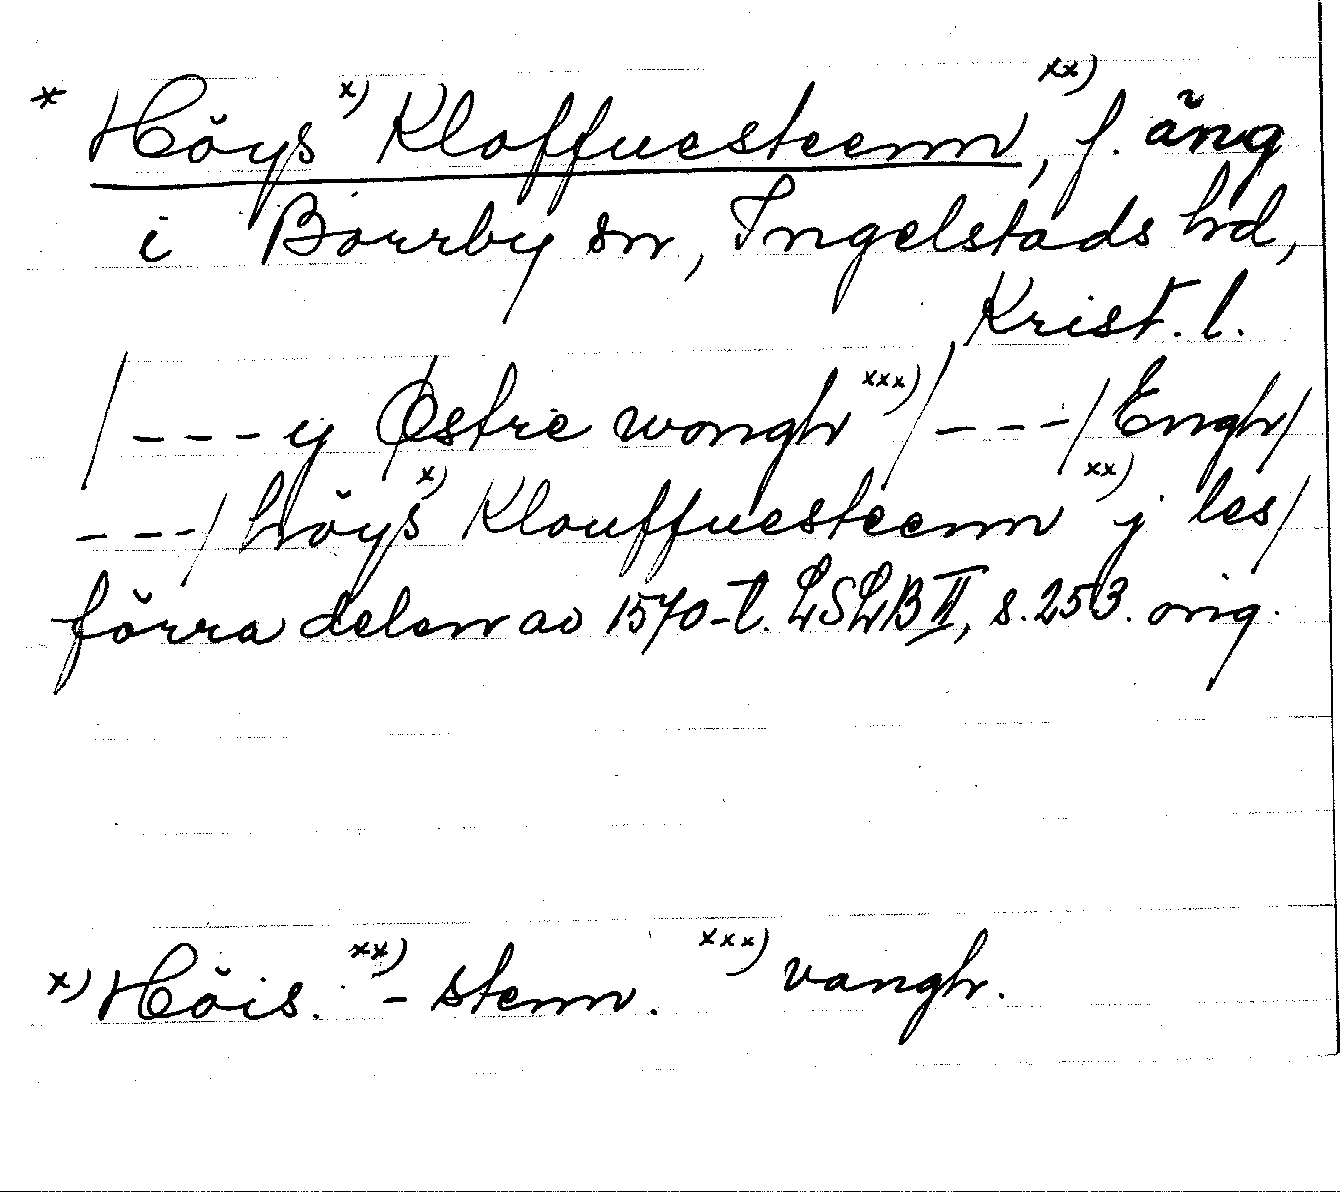 * Höys x) Kloffuesteenn xx), f. äng
i Borrby sn, Ingelstads hd,
Krist. l.
/---y Østre wongh xxx)/---/Engh/
---/höys x) Klouffuesteenn xx) j les/
förra delen av 1570-t. LSLB II, s. 253. orig.
x) Höis. xx) -stenn. xxx) vangh.